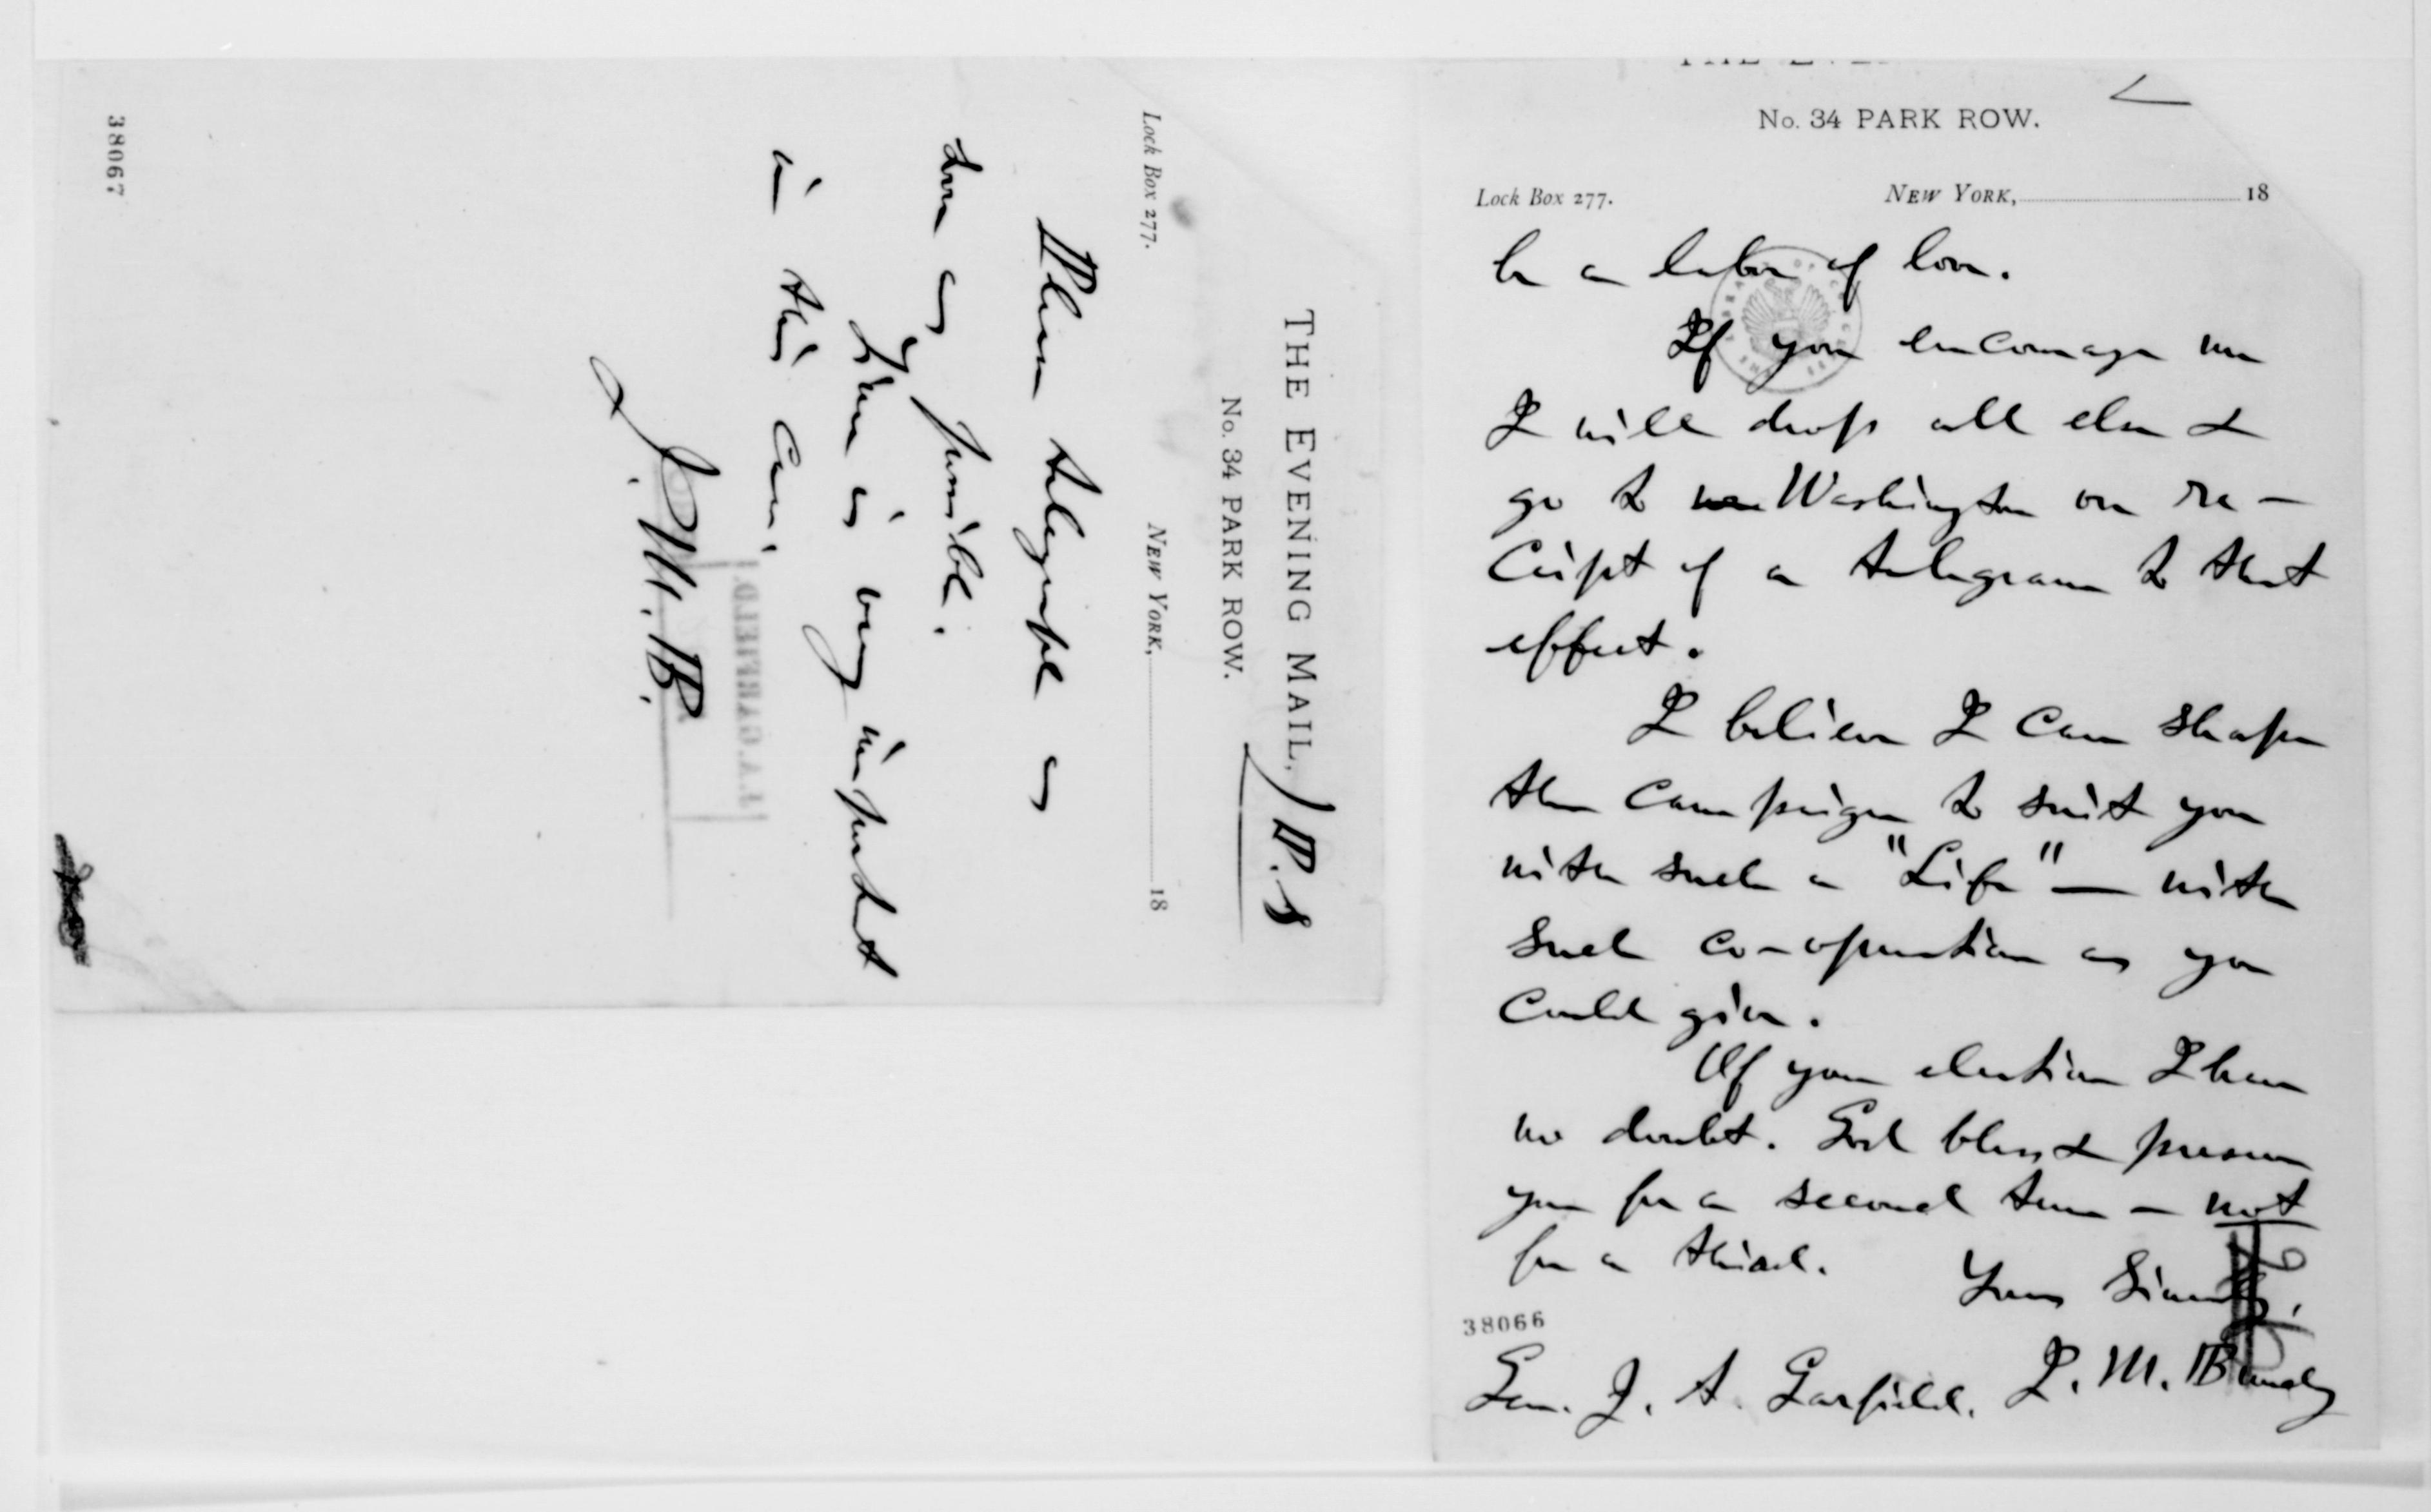 No. 34 PARK ROW.
Lock Box 277. NEW YORK, 18
be a labor of love.
If you encourage me
I will drop all else &
go to Washington on re-
ceipt of a telegram to that
effect.
I believe I can shape
the campaign to suit you
with such a "Life" — with
such co-operation as you
could give.
Of your election I have
no doubt. God bless & preserve
you for a second term — not
for a third. Yours Sincerely,
38066
Gen. J. A. Garfield. J. M. Bundy
THE EVENING MAIL, P.S
No. 34 PARK ROW.
Lock Box 277. NEW YORK, 18
Please telegraph as
soon as possible.
Time is very important
in this case.
J. M. B.
J. A. GARFIELD.
38067